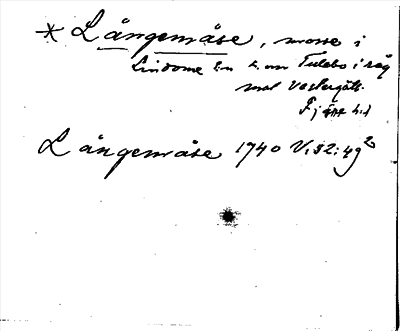 * Långemåse, mosse i
Lindome sn s. om Tulebo i råg
mot Västergötl.
Fj ä hd
Långemåse 1740 V:32:49²